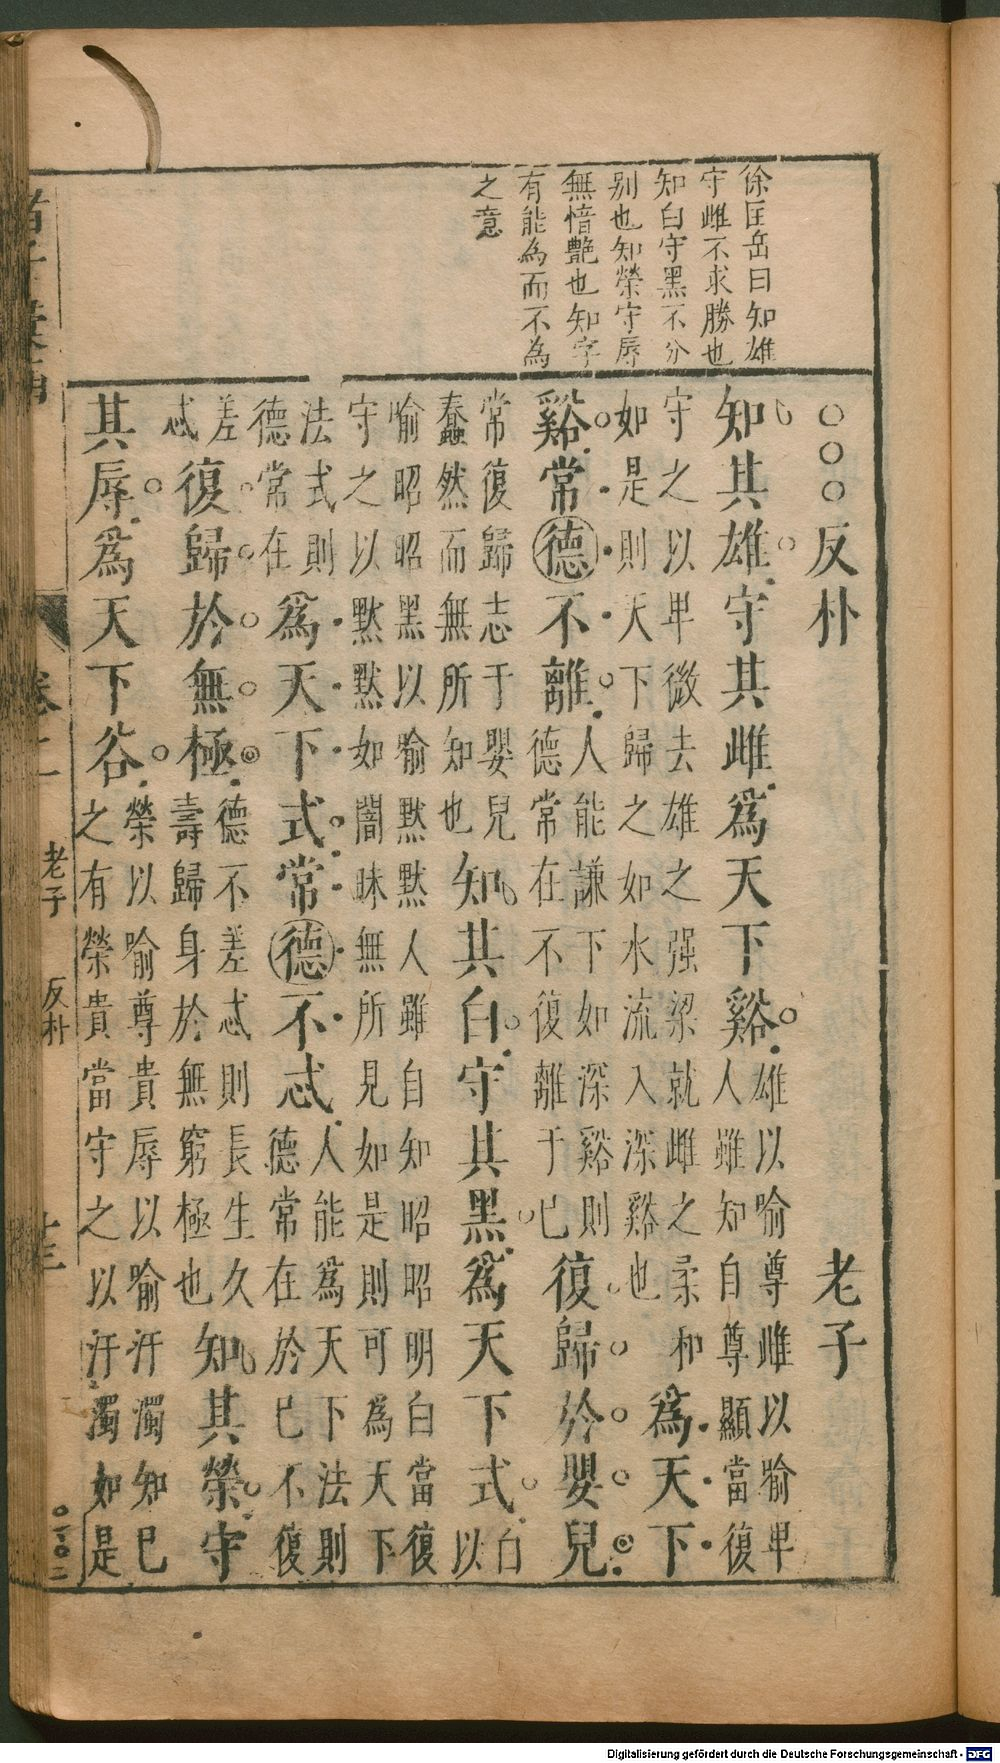 徐匡岳曰知雄
守雌不求勝也
知白守黑不分
别也知榮守辱
無愔艷也知字
有能為而不為
之意
○○○反朴 老子
知其雄守其雌爲天下谿雄以喻尊雌以喻卑人雖知自尊顯當復
守之以卑微去雄之强梁就雌之柔和如是則天下歸之如水流入深谿也爲天下
谿常德不離人能謙下如深谿則德常在不復離于已復歸於嬰兒
常復歸志于嬰兒蠢然而無所知也知其白守其黑爲天下式白以
喻昭昭黑以喻默默人雖自知昭昭明白當復守之以默默如闇昧無所見如是則可為天下
法式則德常在爲天下式常德不忒人能爲天下法則德常在於已不復
差忒復歸於無極德不差忒則長生久壽歸身於無窮極也知其榮守
其辱爲天下谷榮以喻尊貴辱以喻汙濁知已之有榮貴當守之以汙濁如是
卷二 老子 反朴 十三
Digitalisierung gefördert durch die Deutsche Forschungsgemeinschaft - DFG